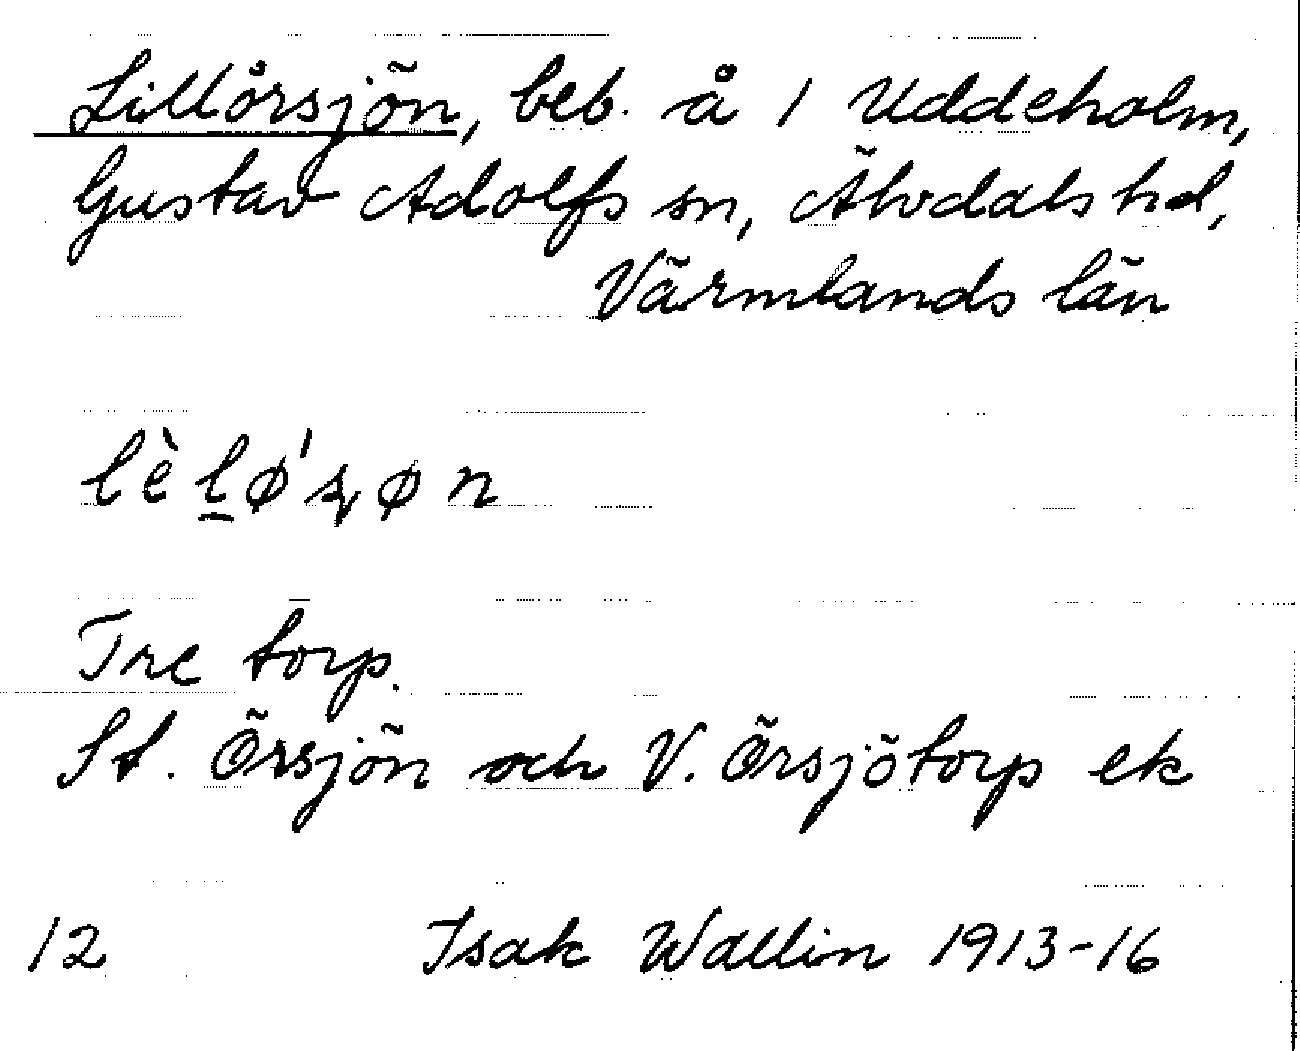 Lillörsjön, beb. å 1 Uddeholm,
Gustav Adolfs sn, Älvdals hd,
Värmlands län
lè l̲ø'ʂøn
Tre torp.
St. Örsjön och V. Örsjötorp ek
12 Isak Wallin 1913-16